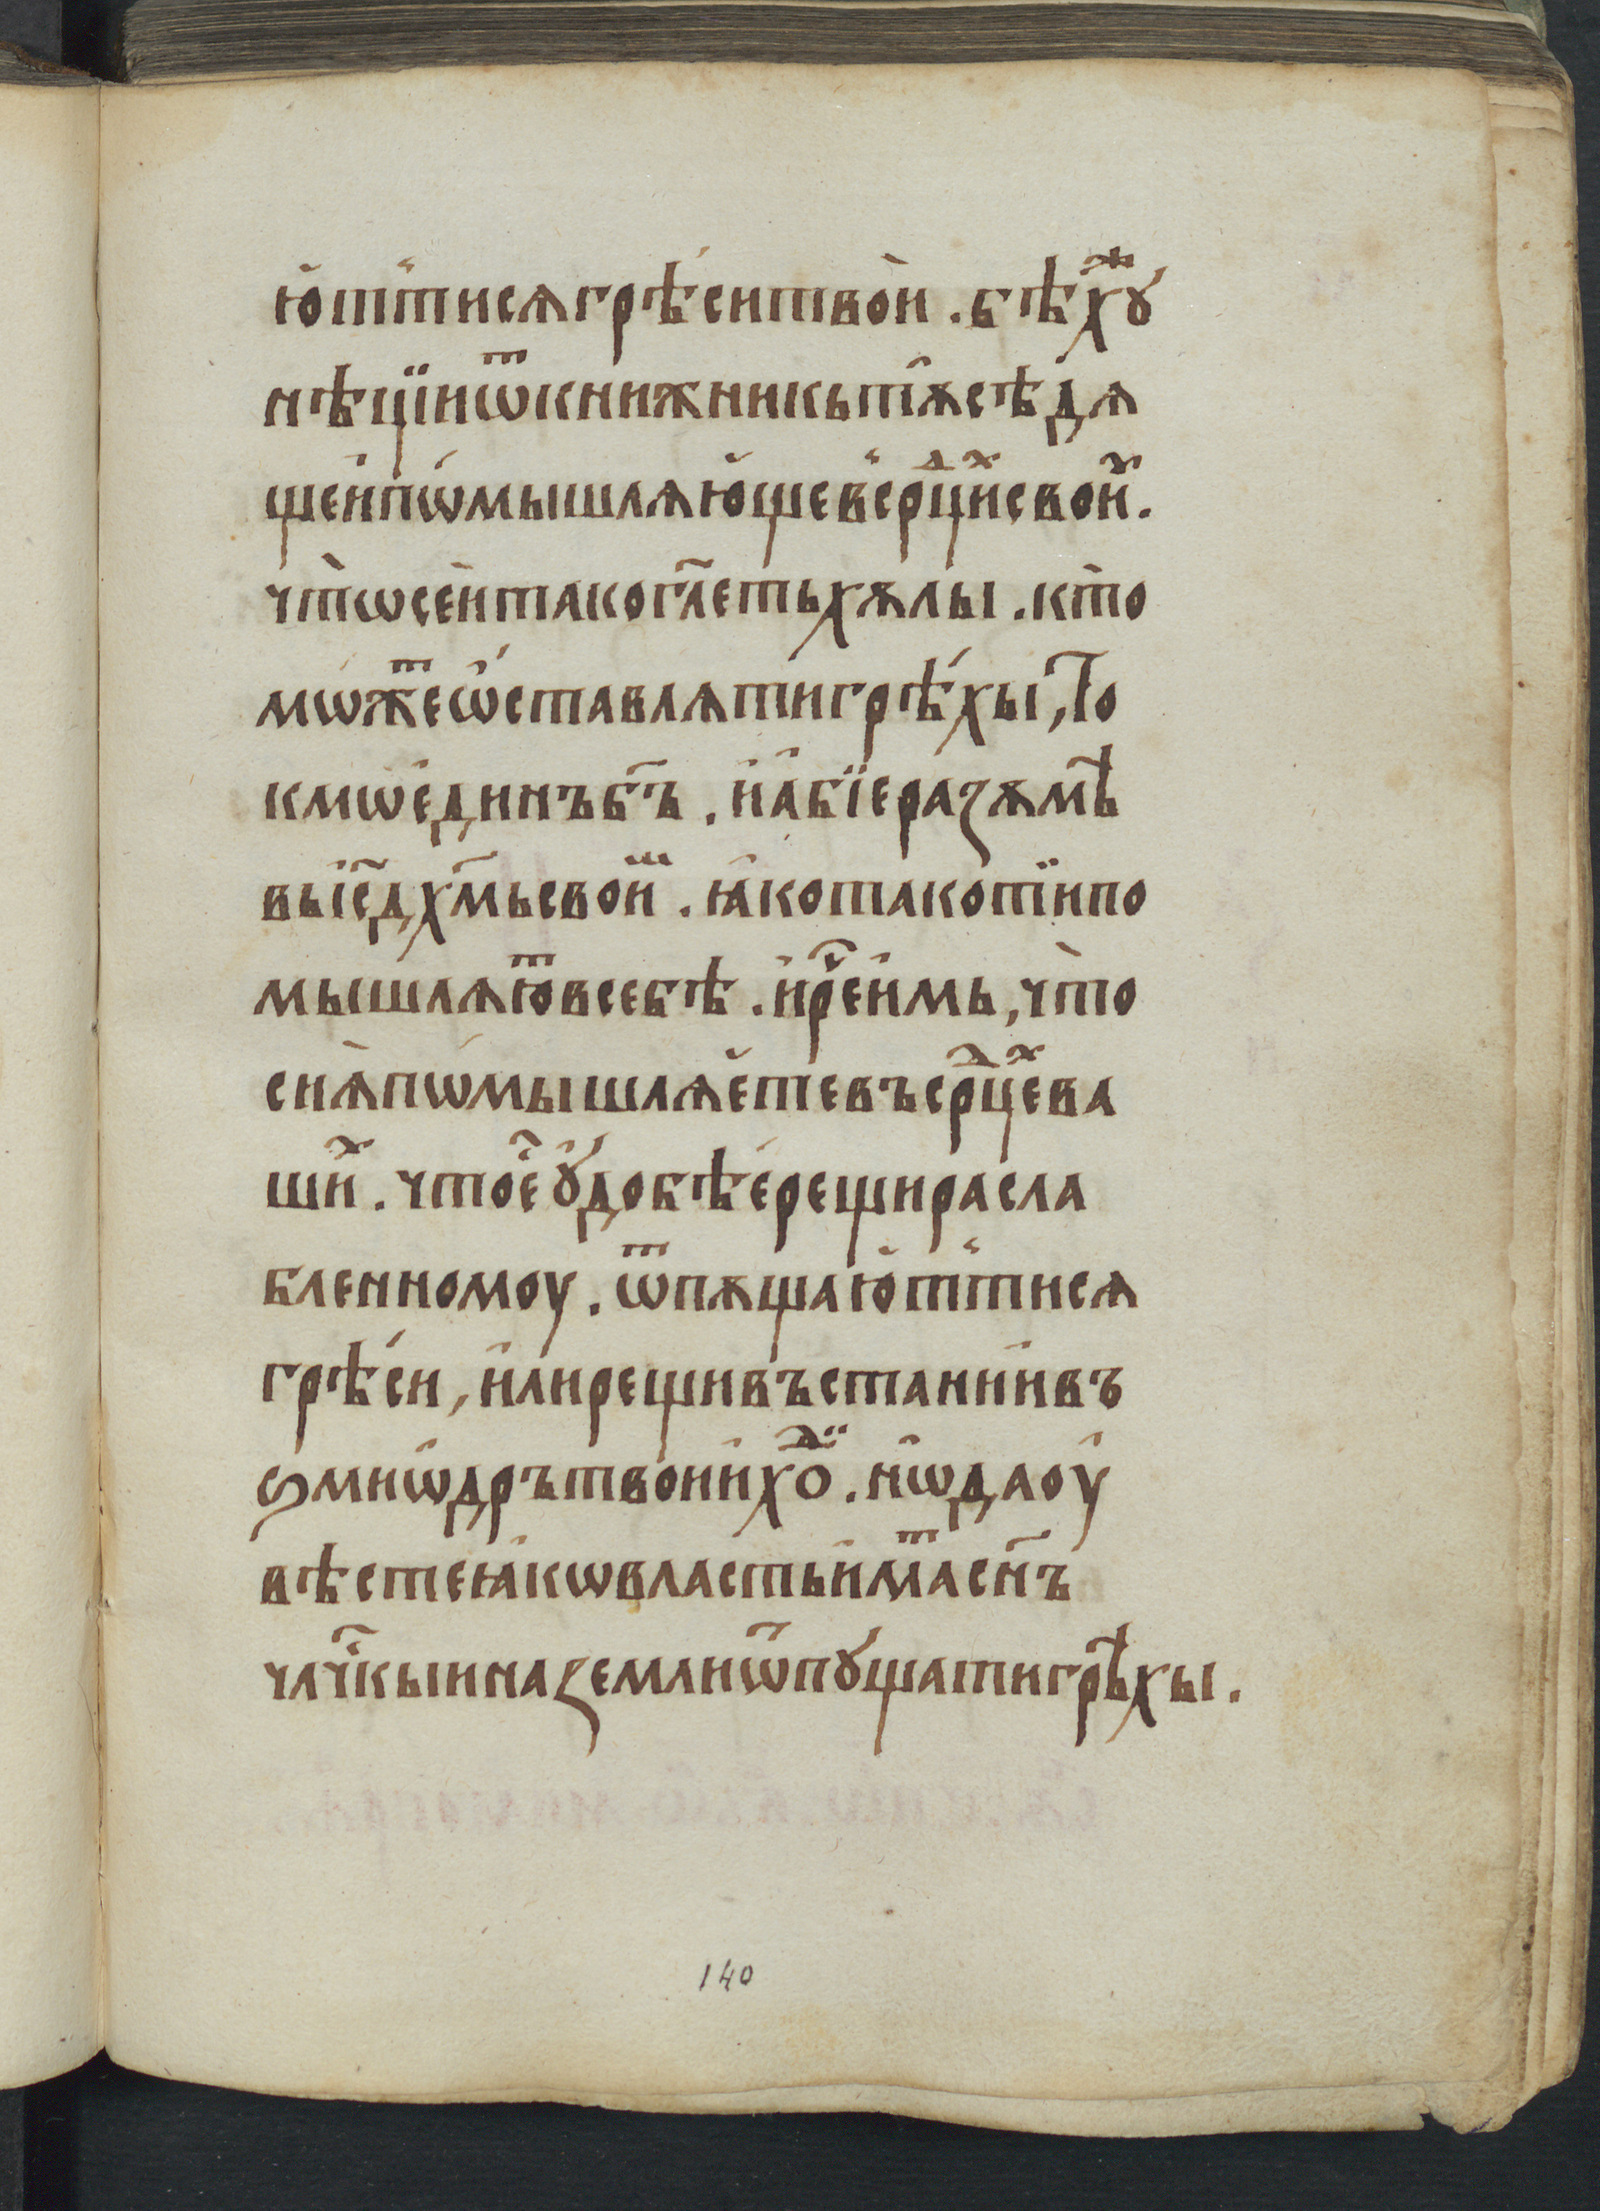 ю҆тⷭ҇тисѧгрѣ́ситво̀и . бѣх́ꙋⷤ
нѣцїиѿкнижникьтꙇ̑ѧсѣдѧ
щеи҆пѡ́мышлѧю҆щевⷭ҇срⷣцⷯисвоиⷯ .
чт̀ѡсѐитакогл҃етьхѫлы . кт̀о
мѡ́жⷮеѡ҆́ставлѧтигрѣ́хы , То
кмѡе҆динъб҃ъ . и҆а҆бїеразѫмѣ́
выі҆с҃дх҃мьсвоиⷨ . ꙗ҆котакотїипо
мышлѧюⷮвсебѣ . и҆рⷱ҇еи҆мь , чт̀о
сиѧ̀пѡ́мышлѧ́етевъсрⷣцⷯева
шиⷯ . чтоⷭ҇еꙋ҆́добѣе҆рещирасла
бленномоу . ѿпѫщаю҆тⷭ҇тисѧ
грѣ́си , и҆лирещивъстаниⷩ҇ивъ
ѕмиѡ҆́дрътво́ии҆хоⷣ . нѡ҆дaоу
вѣстеꙗ҆́кѡвластьи҆́маⷮсн҃ъ
члч҃кыиназемлиѿпꙋщатигрѣ́хы .
140